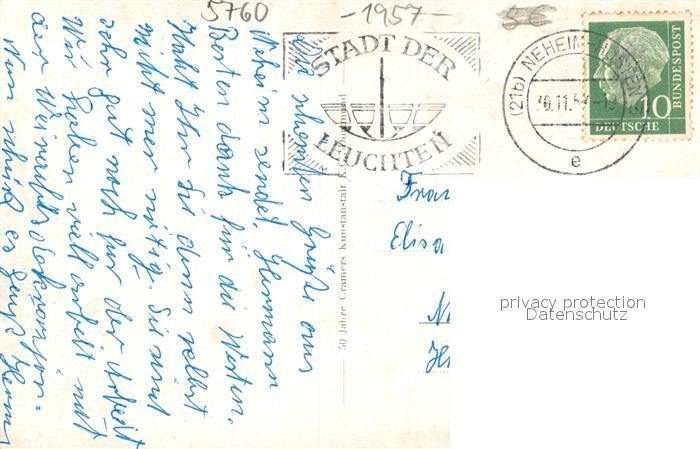 5760
-1957-
5€
STADT DER
LEUCHTEN
(21b) NEHEIM-HÜSTEN
30.11.57
e
10
DEUTSCHE
BUNDESPOST
50 Jahre Cramers Kunstanstalt K Dortmund
Die schönsten Grüße aus
Neheim sendet Hermann
Besten dank für die Westen.
Habt Ihr Sie denn selbst
nicht mer nötig. Sie sind
sehr gut noch für der Arbeit
Wir haben viel arbeit mit
der Weinachtsdekoration.
Nun schickt es Herm
Frau
Elisa
N
H
privacy protection
Datenschutz